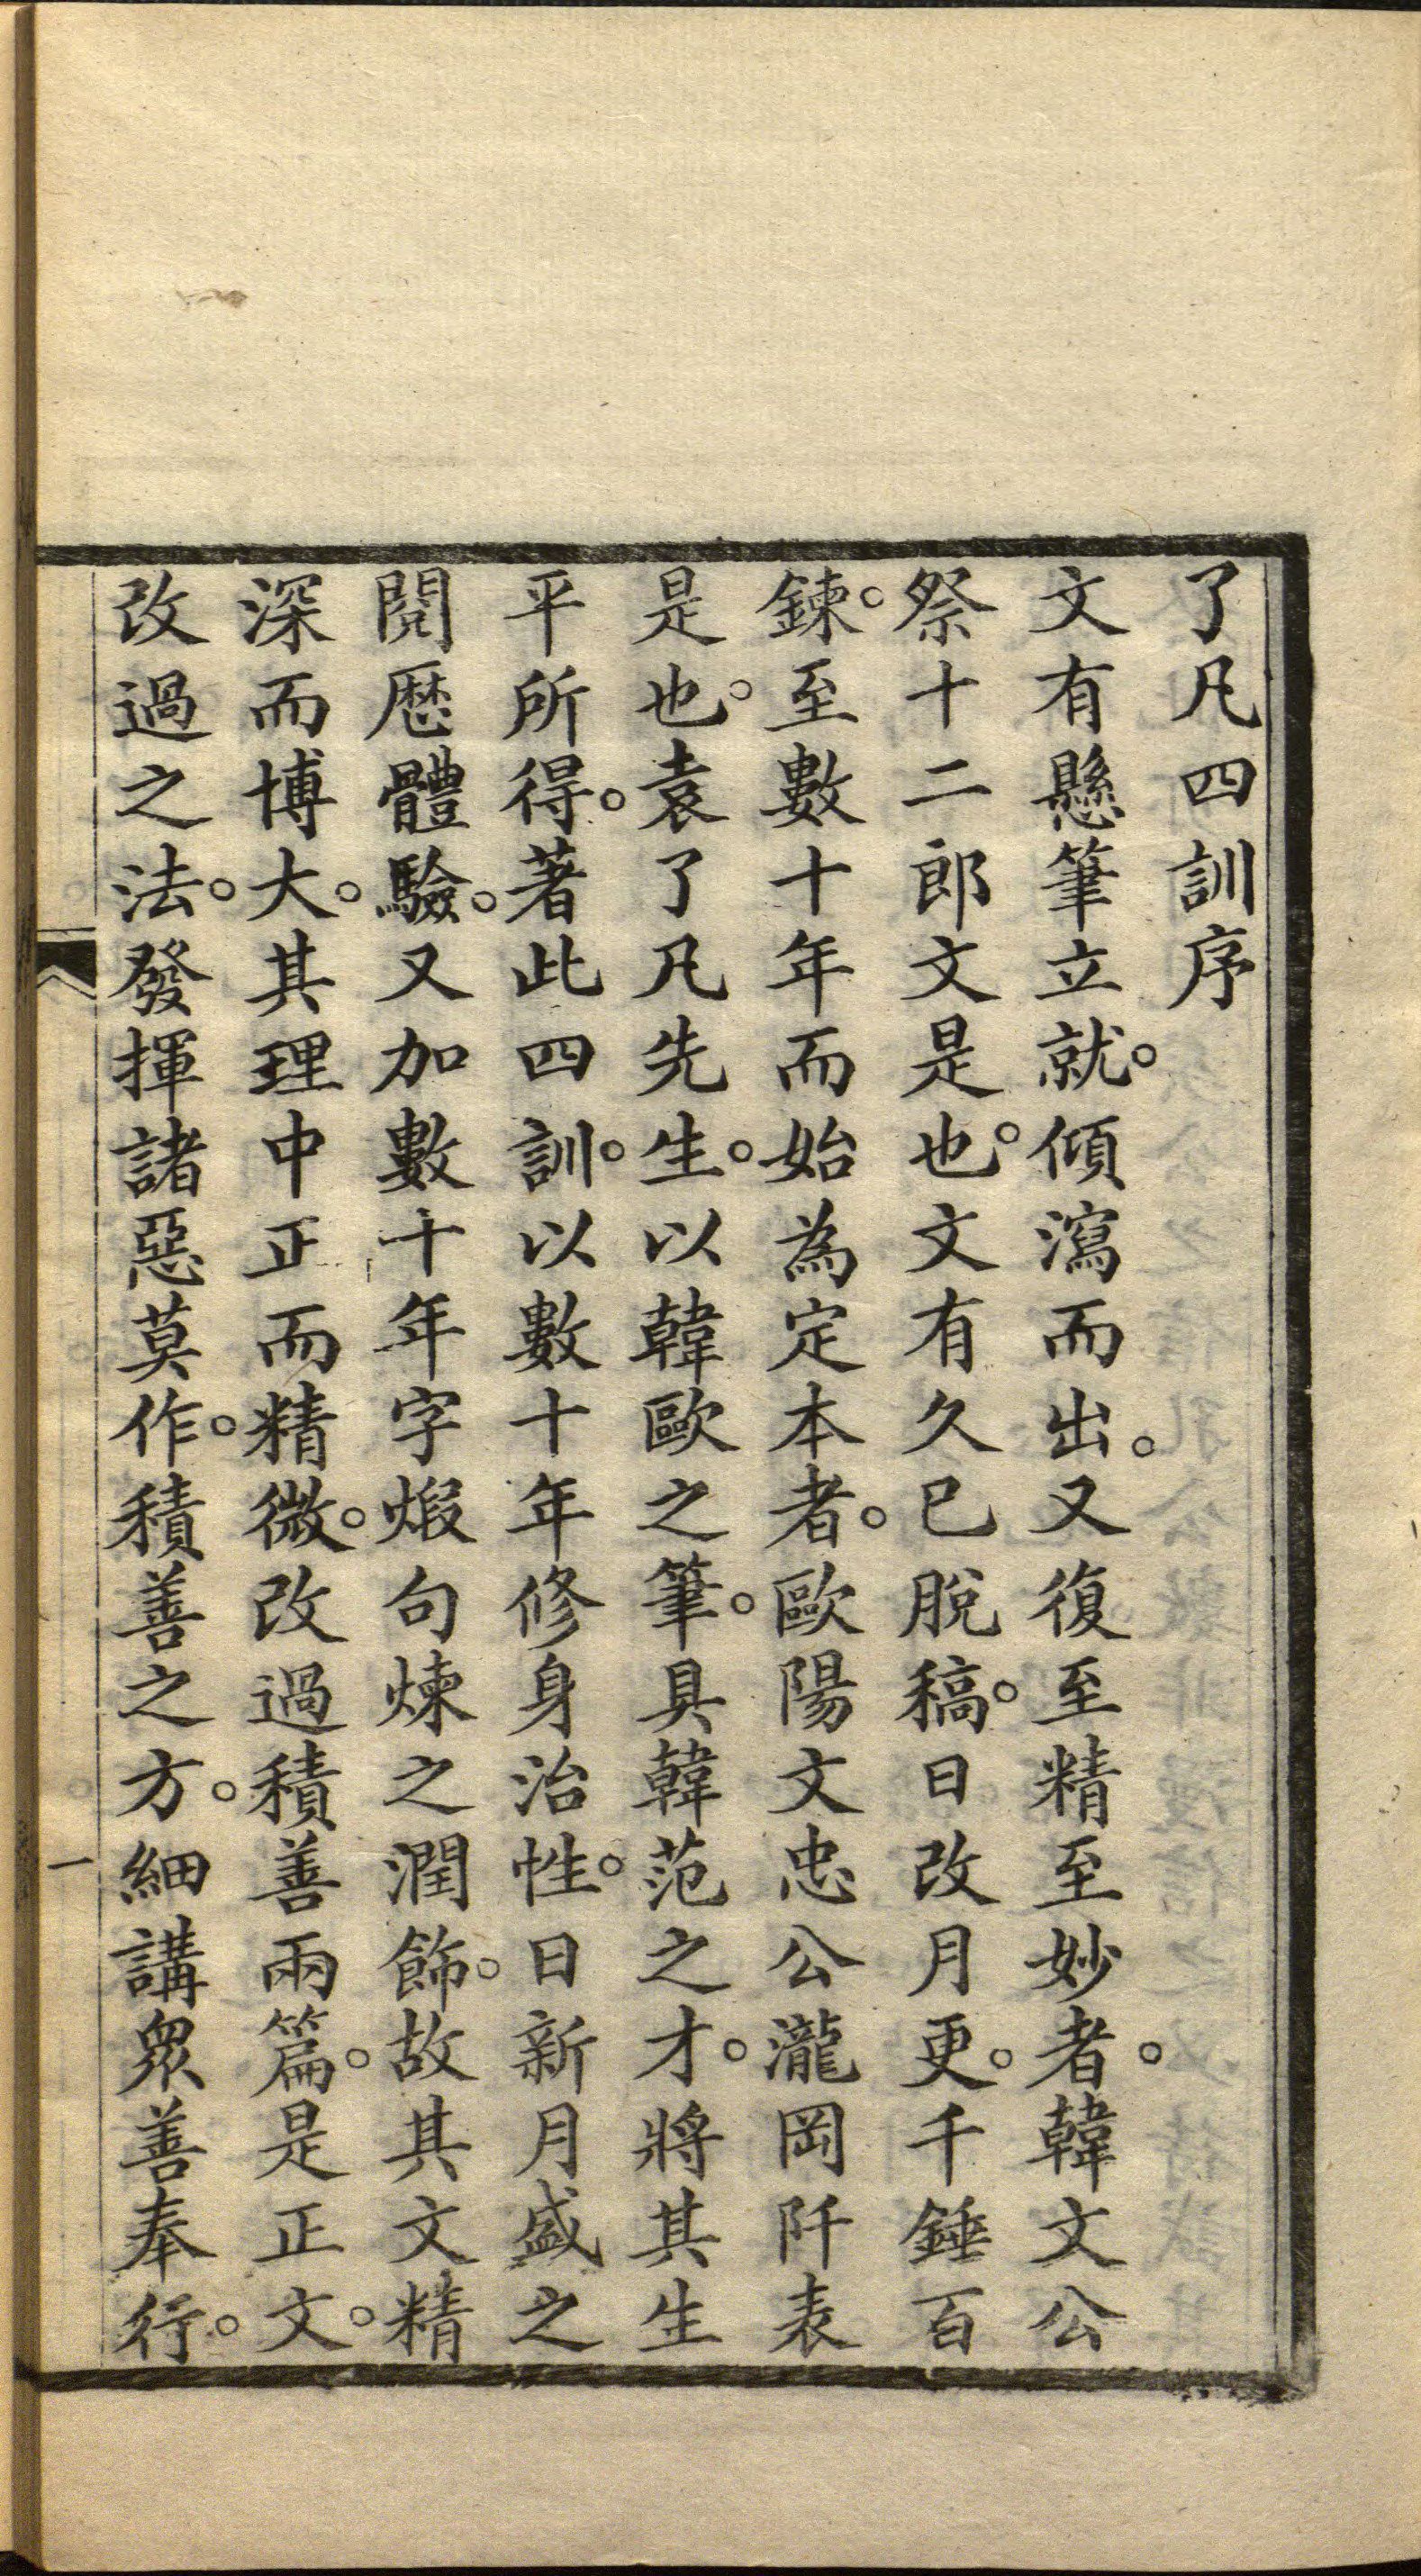 了凡四訓序
文有懸筆立就。傾瀉而出。又復至精至妙者。韓文公
祭十二郎文是也。文有久已脫稿。日改月更。千錘百
鍊。至數十年而始為定本者。歐陽文忠公瀧岡阡表
是也。袁了凡先生。以韓歐之筆。具韓范之才。將其生
平所得。著此四訓。以數十年修身治性。日新月盛之
閱歷體驗。又加數十年字煅句煉之潤飾。故其文精
深而博大。其理中正而精微。改過積善兩篇。是正文。
改過之法。發揮諸惡莫作。積善之方。細講眾善奉行。
一